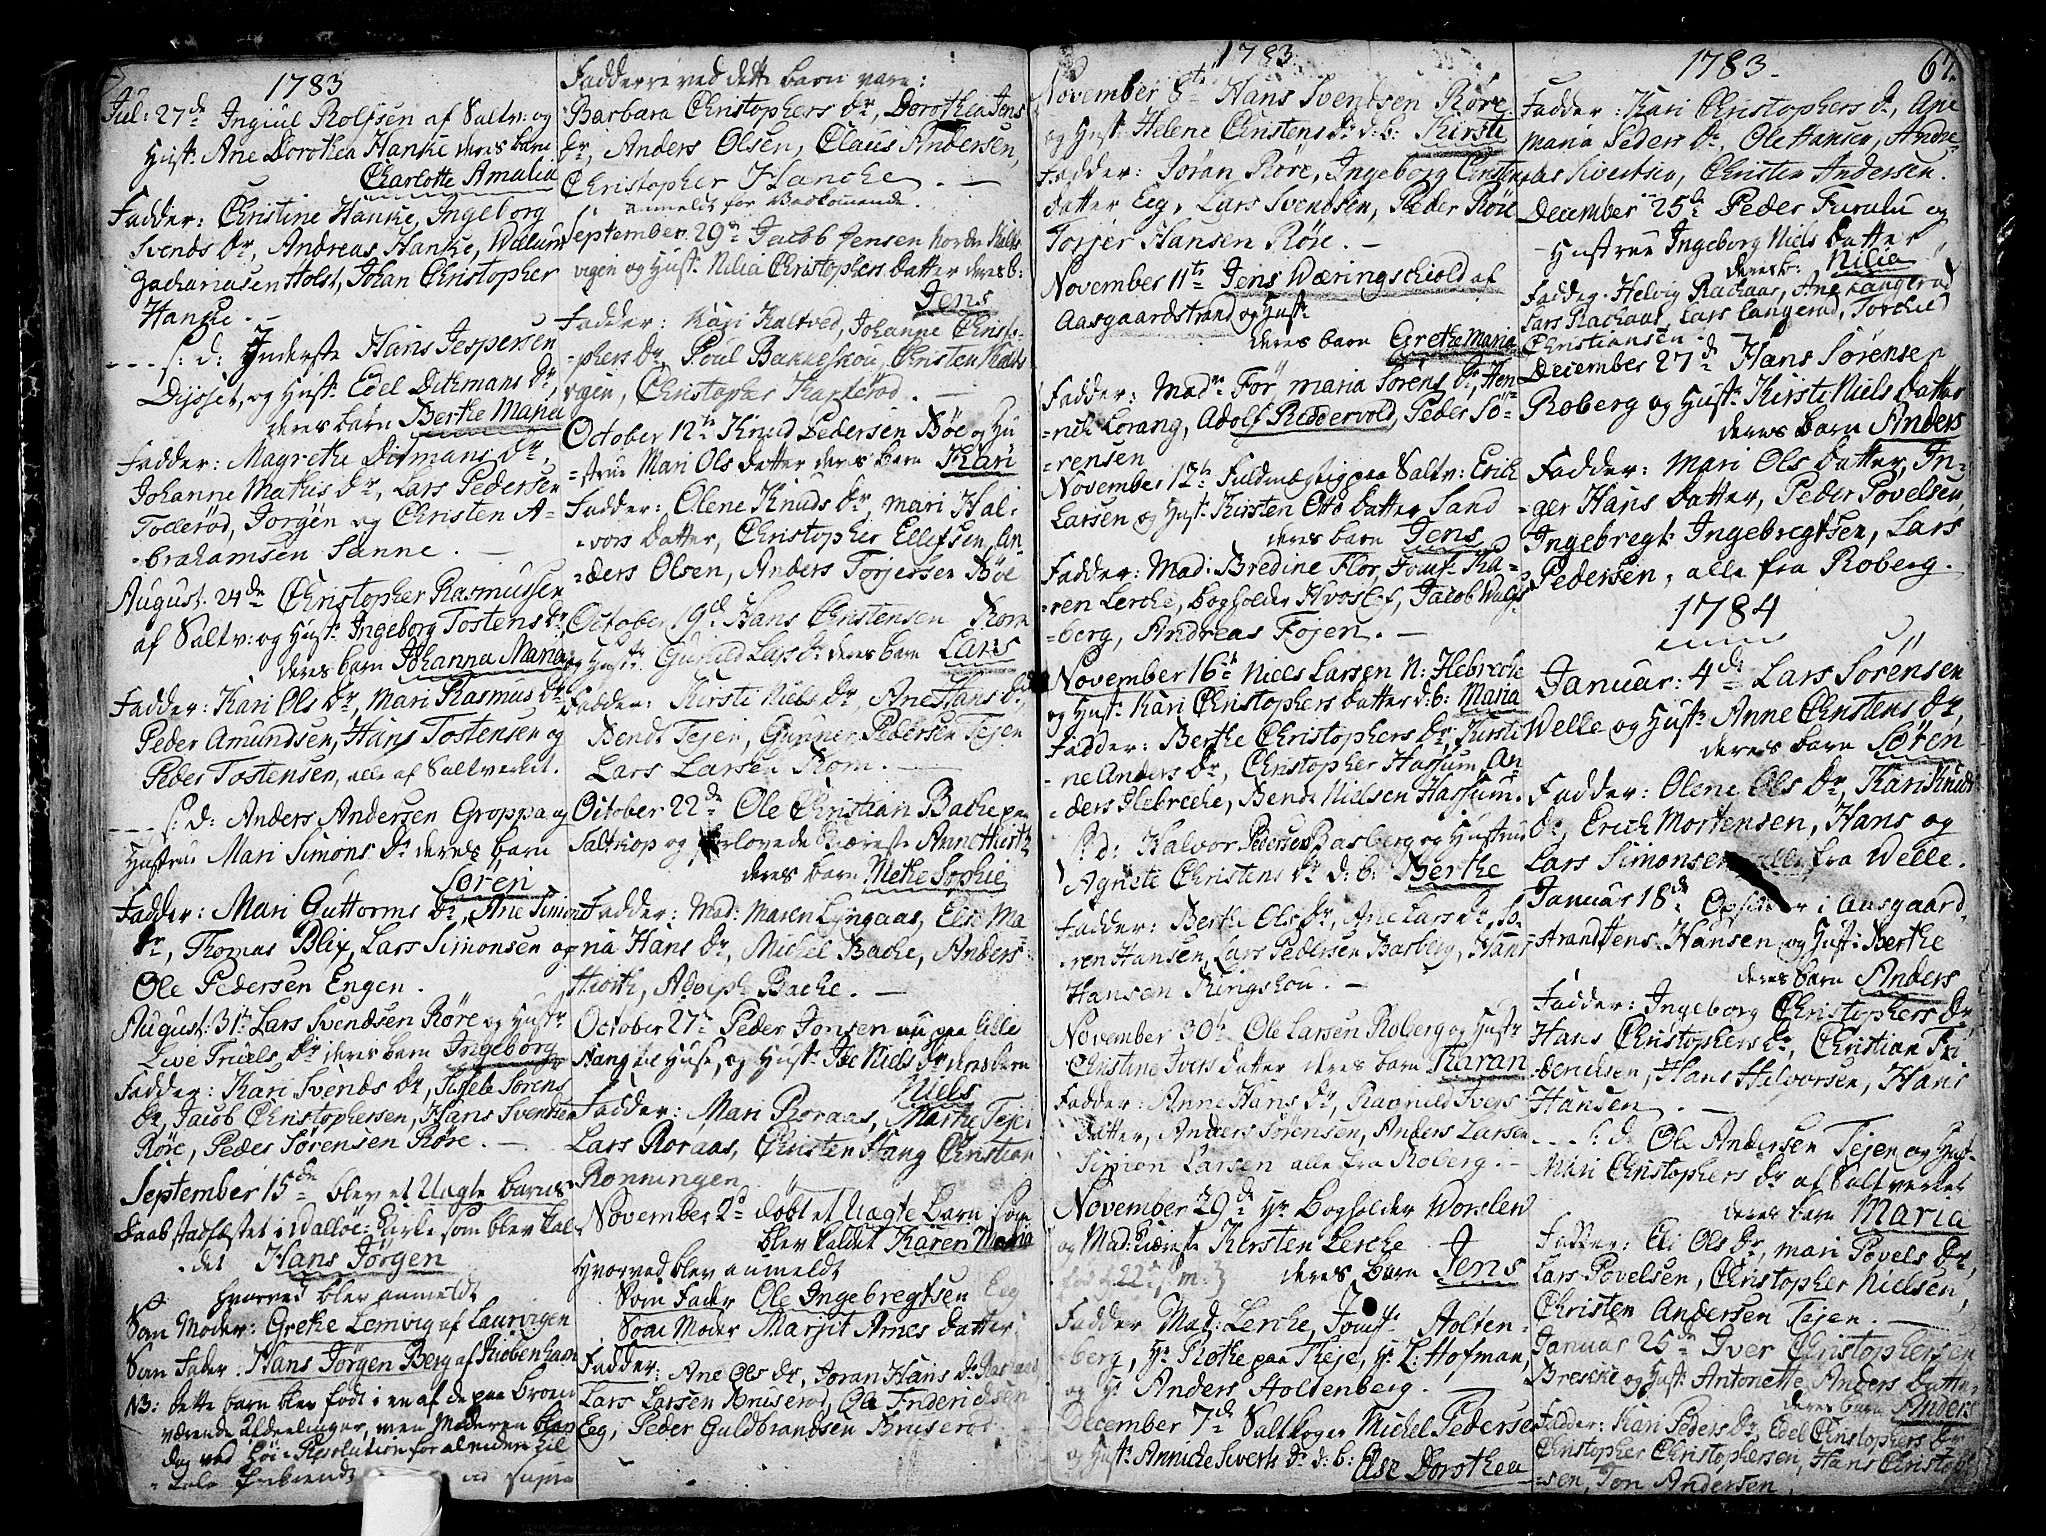 1783
Jul: 27de Ingiul Rolfsen af Saltv: og
Hust: Ane Dorothea Hanke deres barn
Charlotte Amalia
Fadder: Christine Hanke, Ingeborg
Svends Dr, Andreas Hanke, Willum
Zachariasen Holst, Johan Christopher
Hanke.
S: D: Inderste Hans Jespersen
Dysset, og Hust: Edel Dithmans Dr,
deres barn Berthe Maria
Fadder: Magrethe Ditmans Dr,
Johanne Mathis Dr, Lars Pedersen
Tollerød, Jørgen og Christen A-
-brahamsen Sanne.
August: 24de Christopher Rasmussen
af Saltv: og Hust: Ingeborg Tostens Dr,
deres barn Johanna Maria
Fadder: Kari Ols Dr, Mari Rasmus Dr
Peder Amundsen, Hans Tostensen og
Peder Tostensen, alle af Saltverket.
S: D: Anders Andersen Groppa og
Hustrue Mari Simons Dr deres barn
Søren
Fadder: Mari Guttorms Dr, Ane Simons
Dr, Thomas Blix, Lars Simonsen og
Ole Pedersen Engen.
August: 31te Lars Svendsen Røre og Hustr
Live Truels Dr deres barn Ingeborg
Fadder: Kari Svends Dr, Sørens
Dr, Jacob Christophersen, Hans Svendsen
Røre, Peder Sørensen Røre.
September 15de blev et Uægte barns
Daab stadfæstet i Valløe: Kirke som blev kal-
-det Hans Jørgen
hvorved blev anmeldt
Som Moder: Grethe Lemvig af Laurvigen
Som Fader: Hans Jørgen Berg af Kiøbenhavn
NB: dette barn blev født i en af de paa
værende Afdeelinger, men Moderen
dag ved Høi Resolution for
Fadderne ved dette barn vare:
Barbara Christophers Dr, Dorothea Jens
Dr, Anders Olsen, Claus Andersen,
Christopher Hancke.
Anmeldt for Vedkommende.
September 29de Jacob Jensen Nordre
vigen og Hust: Nilia Christophers datter deres b:
Jens
Fadder: Kari Kaltved, Johanne Christo-
-phers Dr, Poul Bakkeskou, Christen
vigen, Christopher
October 12te Knud Pedersen Bøe og Hu
-strue Mari Ols datter deres barn Kari
Fadder: Olene Knuds Dr, Mari Hal-
-vors datter, Christopher Ellefsen, An-
-ders Olsen, Anders Torjersen Bøe
October 19de Hans Christensen Rom
og Hustr: Gunild Lars Dr deres barn Lars
Fadder: Kirsti Niels Dr, Ane Hans Dr,
Bendt Tejen, Gunner Pedersen Tejen
Lars Larsen Rom.
October 22de Ole Christian Bache paa
Saltkop og forlovede Kiæreste Anne Hiorth
deres barn Methe Sophie
Fadder: Mad: Maren Lyngaas, Else Ma-
ria Hans Dr, Michel Bache, Anders
Hiorth, Adolph Bache.
October 27de Peder Jonsen nu paa lille
Hang til Huse, og Hust: Ide Niels Dr deres barn
Niels
Fadder: Mari Roraas, Marthe Teje
Lars Roraas, Christen Hang Christian
Rønningen
November 2de døbt et Uægte Barn Som
blev kaldet Karen Maria
hvorved blev anmeldt
Som Fader Ole Ingebregtsen Eeg
Som Moder Marjit Arnes datter
Fadder: Ane Ols Dr, Joran Hans Dr
Lars Larsen Bruserød, Ole Friderichsen
Eeg, Peder Guldbrandsen Bruserød
1783
November 8te Hans Svendsen Røre
og Hust: Helene Christens Dr d: b: Kirsti
Fadder: Joran Røre, Ingeborg Christens
datter Eeg, Lars Svendsen, Peder Røre
Torjer Hansen Røre.
November 11te Jens Wæringschiold af
Aasgaardstrand og Hust:
deres barn Grethe Maria
Fadder: Mad: For, Maria Sørens Dr, Hen-
-rich Lorang, Adolf Riddervold, Peder Sö-
-rensen
November 12te Fuldmægtig paa Saltv: Erich
Larsen og Hust: Kirsten Otto datter Sand
deres barn Jens
Fadder: Mad: Bredine Flor, Jomf: Ka-
-ren Lerche, bogholder Hvoslef, Jacob Wulfs
-berg, Andreas Føjen.
November 16de Niels Larsen N: Hebrech
og Hust: Kari Christophers datter d: b: Maria
Fadder: Berthe Christophers Dr, Kirsti
ne Anders Dr, Christopher Hassum, An-
-ders Hebreche, Bendt Nielsen Hassum.
S: d: Halvor Pedersen Basberg og Hustrue
Agnete Christens Dr d: b: Berthe
Fadder: Berthe Ols Dr, Ane Lars Dr, Sö-
-ren Hansen, Lars Pedersen Basberg, Hans
Hansen Ringskou.
November 30te Ole Larsen Roberg og Hustr
Christine Ivers datter deres barn Karan
Fadder: Anne Hans Dr, Ragnild Ivers
datter, Anders Sørensen, Anders Larsen
Simon Larsen alle fra Roberg.
November 29de Hr Bogholder Worslew
og Mad: Kiæreste Kirsten Lerche
fød d. 22de s: m: deres barn Jens
Fadder Mad: Lerche, Jomfr Holten-
-berg, Hr Rothe paa Teje, Hr L: Hofman,
og Hr Anders Holtenberg.
December 7de Saltkoger Michel Pedersen
og Hust: Annicke Siverts Dr d: b: Else Dorothea
1783. 67.
Fadder: Kari Christophers Dr, Ane
Maria Peders Dr, Ole Hansen, Andre-
-as Sivertsen, Christen Andersen.
December 25de Peder Furulu og
Hustrue Ingeborg Niels datter
deres b: Nilia
Fadder: Helvig Rachaas, Ane Langerød
Lars Rachaas, Lars Langerud, Torchel
Christiansen.
December 27de Hans Sørensen
Roberg og Hust: Kirsti Niels datter
deres barn Anders
Fadder: Mari Ols datter, In-
-ger Hans datter, Peder Povelsen,
Ingebregt Ingebregtsen, Lars
Pedersen, alle fra Roberg.
1784
Januar: 4de Lars Sørensen
Welle og Hust: Anne Christens Dr,
deres barn Søren
Fadder: Olene Ols Dr, Kari Knuds
Dr, Erich Mortensen, Hans og
Lars Simonsen alle fra Welle.
Januar 18de Opsidder i Aasgaard-
-strand Jens Hansen og Hust: Berthe
deres barn Anders
Fadder: Ingeborg Christophers Dr
Hans Christophers Dr, Christian Fri-
derichsen, Hans Halvorsen, Hans
Hansen.
S: d: Ole Andersen Tejen og Hust:
Mari Christophers Dr af Saltverket
deres barn Maria
Fadder: Eli Ols Dr, Mari Povels Dr,
Lars Povelsen, Christopher Nielsen,
Christen Andersen Tejen.
Januar 25de Iver Christophersen
Brekke og Hust: Antonette Anders datter
deres barn Anders
Fadder: Kari Peders Dr, Edel Christophers Dr
Christopher Christophersen, Hans Christoph
-sen, Jon Andersen.